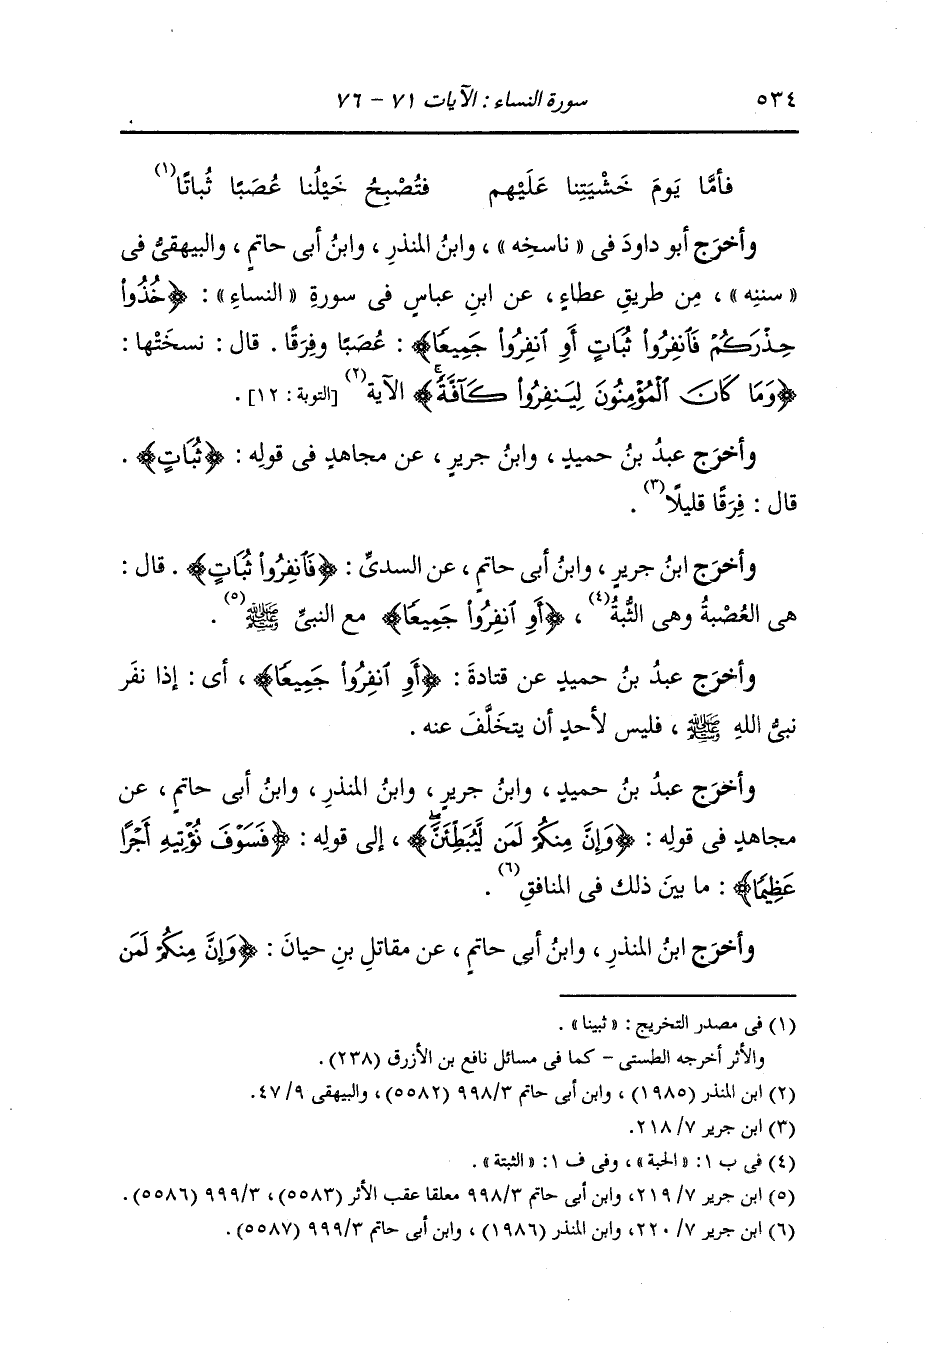 ٥٣٤ سورة النساء : الآيات ٧١ - ٧٦
فأمَّا يَومَ خَشْيَتِنا عَلَيْهم فتُصْبِحُ خَيْلُنا عُصَبًا ثُباتًا(١)
وأخرَج أبو داودَ فى « ناسخِه » ، وابنُ المنذرِ ، وابنُ أبى حاتمٍ ، والبيهقىُّ فى
« سننِه » ، مِن طريقِ عطاءٍ ، عن ابنِ عباسٍ فى سورةِ « النساءِ » : ﴿خُذُواْ
حِذْرَكُمْ فَٱنفِرُواْ ثُبَاتٍ أَوِ ٱنفِرُواْ جَمِيعًا﴾ : عُصَبًا وفِرَقًا . قال : نسخَتْها :
﴿وَمَا كَانَ ٱلْمُؤْمِنُونَ لِيَنفِرُواْ كَآفَّةًۚ﴾ الآية(٢) [التوبة : ١٢] .
وأخرَج عبدُ بنُ حميدٍ ، وابنُ جريرٍ ، عن مجاهدٍ فى قولِه : ﴿ثُبَاتٍ﴾ .
قال : فِرَقًا قليلًا(٣) .
وأخرَج ابنُ جريرٍ ، وابنُ أبى حاتمٍ ، عن السدىِّ : ﴿فَٱنفِرُواْ ثُبَاتٍ﴾ . قال :
هى العُصْبةُ وهى الثُّبةُ(٤) ، ﴿أَوِ ٱنفِرُواْ جَمِيعًا﴾ مع النبىِّ ﷺ(٥) .
وأخرَج عبدُ بنُ حميدٍ عن قتادةَ : ﴿أَوِ ٱنفِرُواْ جَمِيعًا﴾ ، أى : إذا نفَر
نبىُّ اللهِ ﷺ ، فليس لأحدٍ أن يتخَلَّفَ عنه .
وأخرَج عبدُ بنُ حميدٍ ، وابنُ جريرٍ ، وابنُ المنذرِ ، وابنُ أبى حاتمٍ ، عن
مجاهدٍ فى قولِه : ﴿وَإِنَّ مِنكُمْ لَمَن لَّيُبَطِّئَنَّۖ﴾ ، إلى قولِه : ﴿فَسَوْفَ نُؤْتِيهِ أَجْرًا
عَظِيمًا﴾ : ما بينَ ذلك فى المنافقِ(٦) .
وأخرَج ابنُ المنذرِ ، وابنُ أبى حاتمٍ ، عن مقاتلِ بنِ حيانَ : ﴿وَإِنَّ مِنكُمْ لَمَن
(١) فى مصدر التخريج : « ثبينا » .
والأثر أخرجه الطستى - كما فى مسائل نافع بن الأزرق (٢٣٨) .
(٢) ابن المنذر (١٩٨٥) ، وابن أبى حاتم ٩٩٨/٣ (٥٥٨٢) ، والبيهقى ٩/ ٤٧.
(٣) ابن جرير ٧/ ٢١٨.
(٤) فى ب ١: « الحبة » ، وفى ف ١: « الثبتة » .
(٥) ابن جرير ٧/ ٢١٩، وابن أبى حاتم ٩٩٨/٣ معلقا عقب الأثر (٥٥٨٣) ، ٩٩٩/٣ (٥٥٨٦) .
(٦) ابن جرير ٧/ ٢٢٠، وابن المنذر (١٩٨٦) ، وابن أبى حاتم ٩٩٩/٣ (٥٥٨٧) .